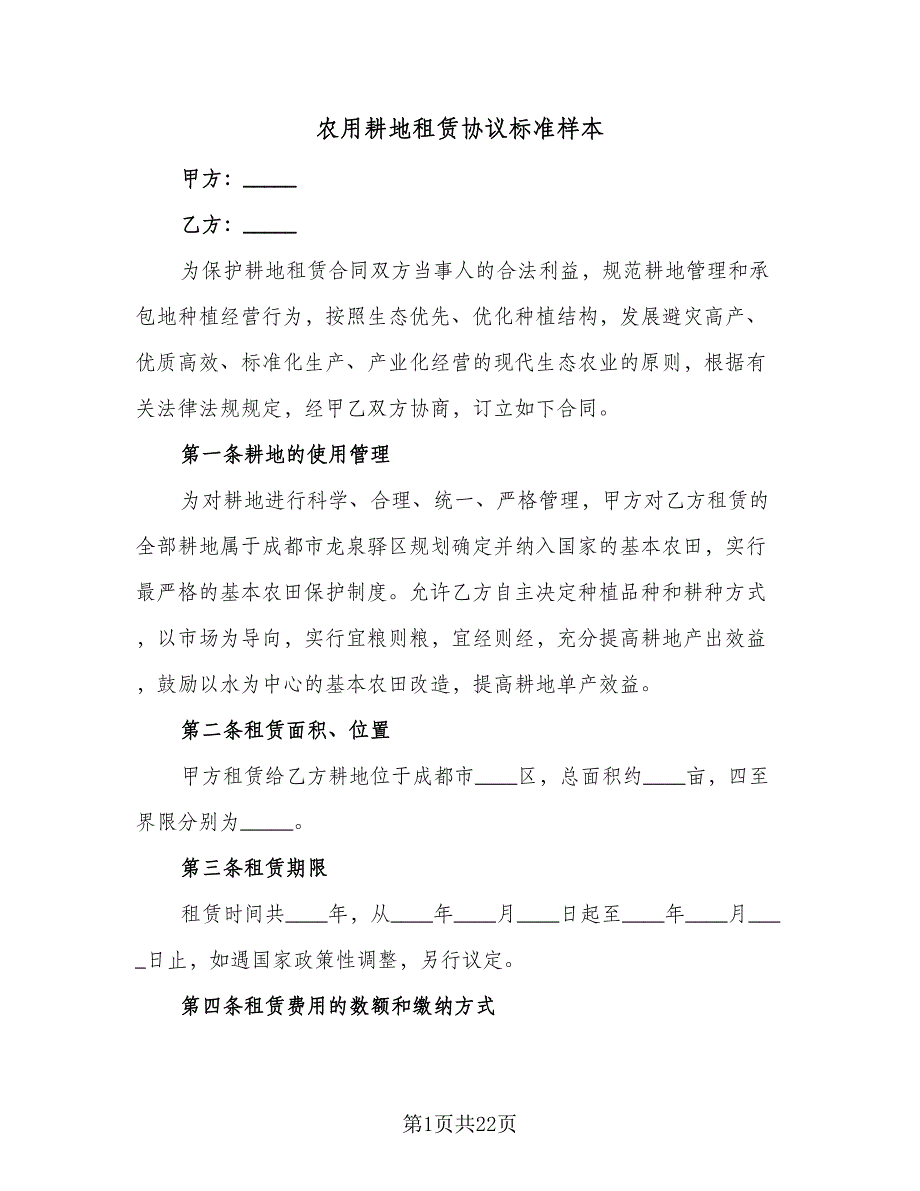 农用耕地租赁协议标准样本
甲方：_____
乙方：_____
为保护耕地租赁合同双方当事人的合法利益，规范耕地管理和承
包地种植经营行为，按照生态优先、优化种植结构，发展避灾高产、
优质高效、标准化生产、产业化经营的现代生态农业的原则，根据有
关法律法规规定，经甲乙双方协商，订立如下合同。
第一条耕地的使用管理
为对耕地进行科学、合理、统一、严格管理，甲方对乙方租赁的
全部耕地属于成都市龙泉驿区规划确定并纳入国家的基本农田，实行
最严格的基本农田保护制度。允许乙方自主决定种植品种和耕种方式
，以市场为导向，实行宜粮则粮，宜经则经，充分提高耕地产出效益
，鼓励以水为中心的基本农田改造，提高耕地单产效益。
第二条租赁面积、位置
甲方租赁给乙方耕地位于成都市____区，总面积约____亩，四至
界限分别为_____。
第三条租赁期限
租赁时间共____年，从____年____月____日起至____年____月___
_日止，如遇国家政策性调整，另行议定。
第四条租赁费用的数额和缴纳方式
第1页共22页